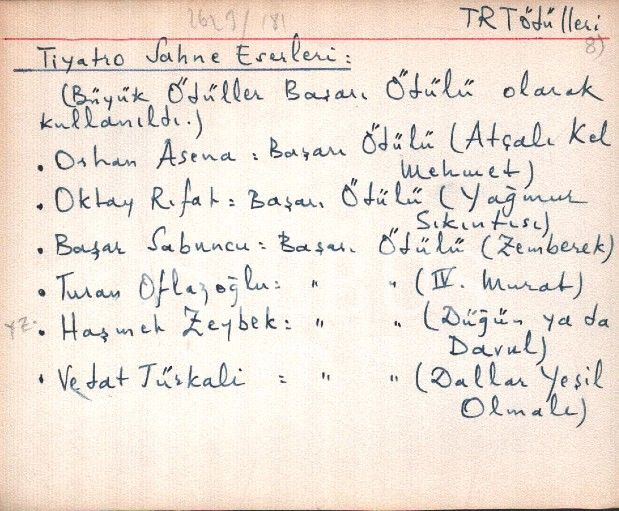 2629/181
TRT Ödülleri
8)
Tiyatro Sahne Eserleri:
(Büyük Ödüller Başarı Ödülü olarak
kullanıldı.)
• Orhan Asena: Başarı Ödülü (Atçalı Kel
Mehmet)
• Oktay Rıfat: Başarı Ödülü (Yağmur
Sıkıntısı)
• Başar Sabuncu: Başarı Ödülü (Zemberek)
• Turan Oflazoğlu: " " (IV. Murat)
yz. • Haşmet Zeybek: " " (Düğün ya da
Davul)
• Vedat Türkali : " " (Dallar Yeşil
Olmalı)